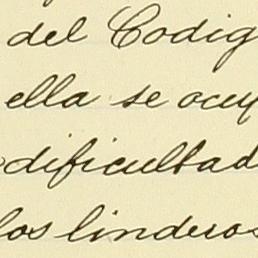 del Codig
ella se ocup
dificultad
los linderos